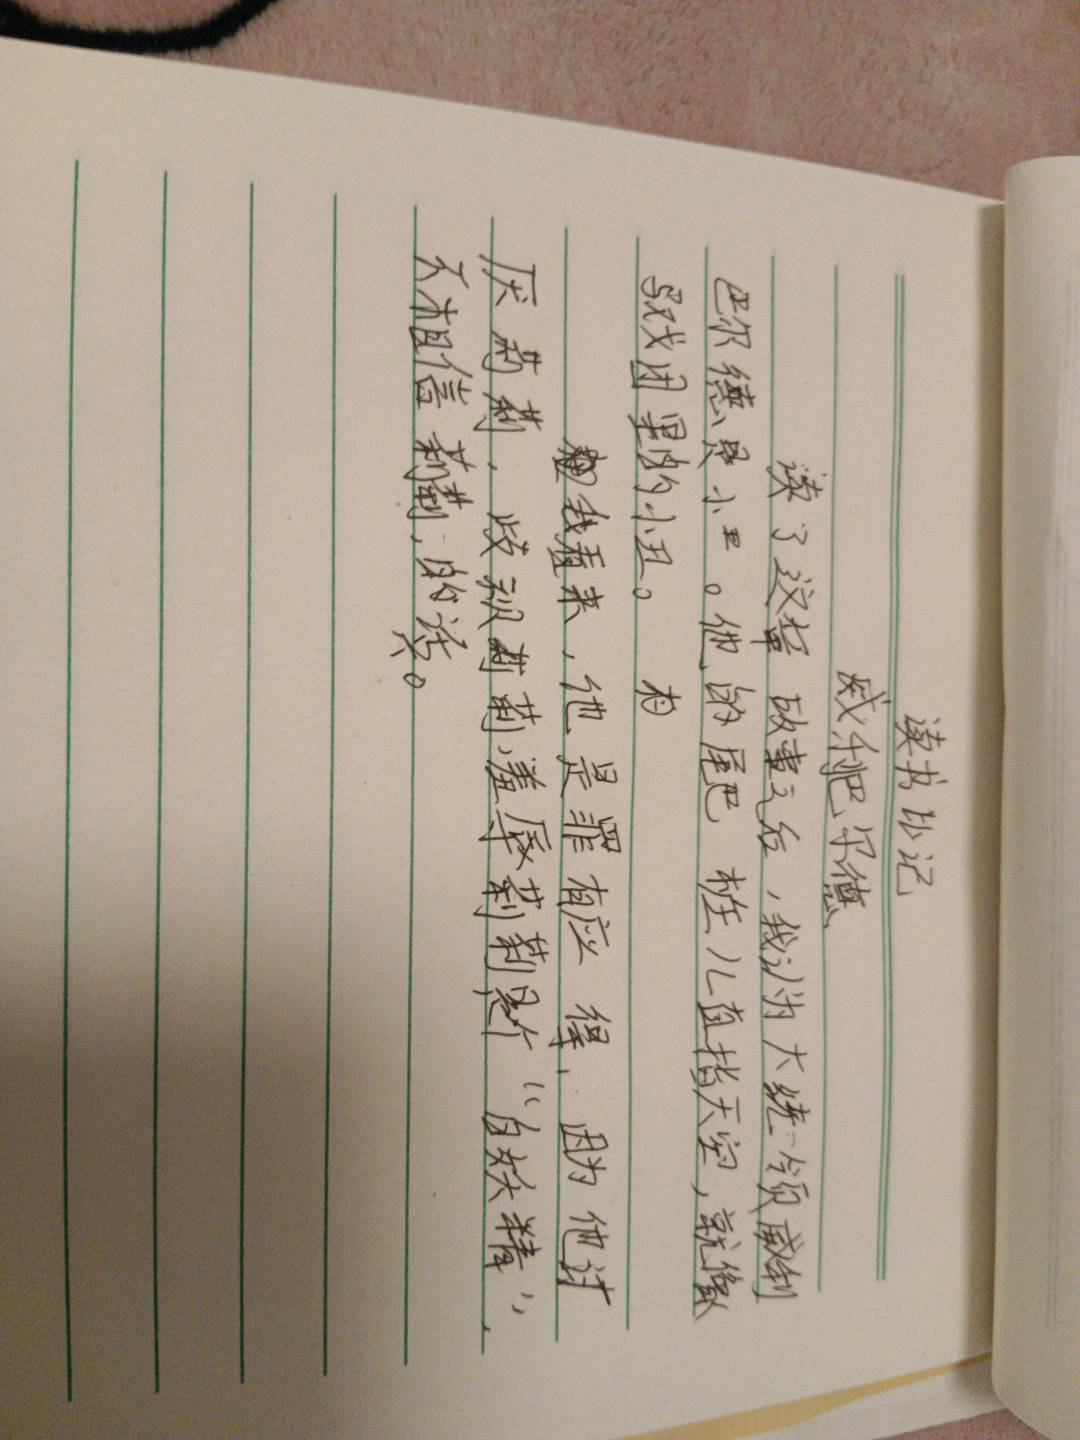 读书比记
威利巴尔德
读了这篇故事之后，我认为大统一领威利
巴尔德是小丑。他的尾巴桩儿直指天空，就像
马戏团里的小丑。
我看来，他是罪有应得，因为他讨
厌莉莉，歧视莉莉，羞辱莉莉是个“白妖精”，
不相信莉莉，的话。